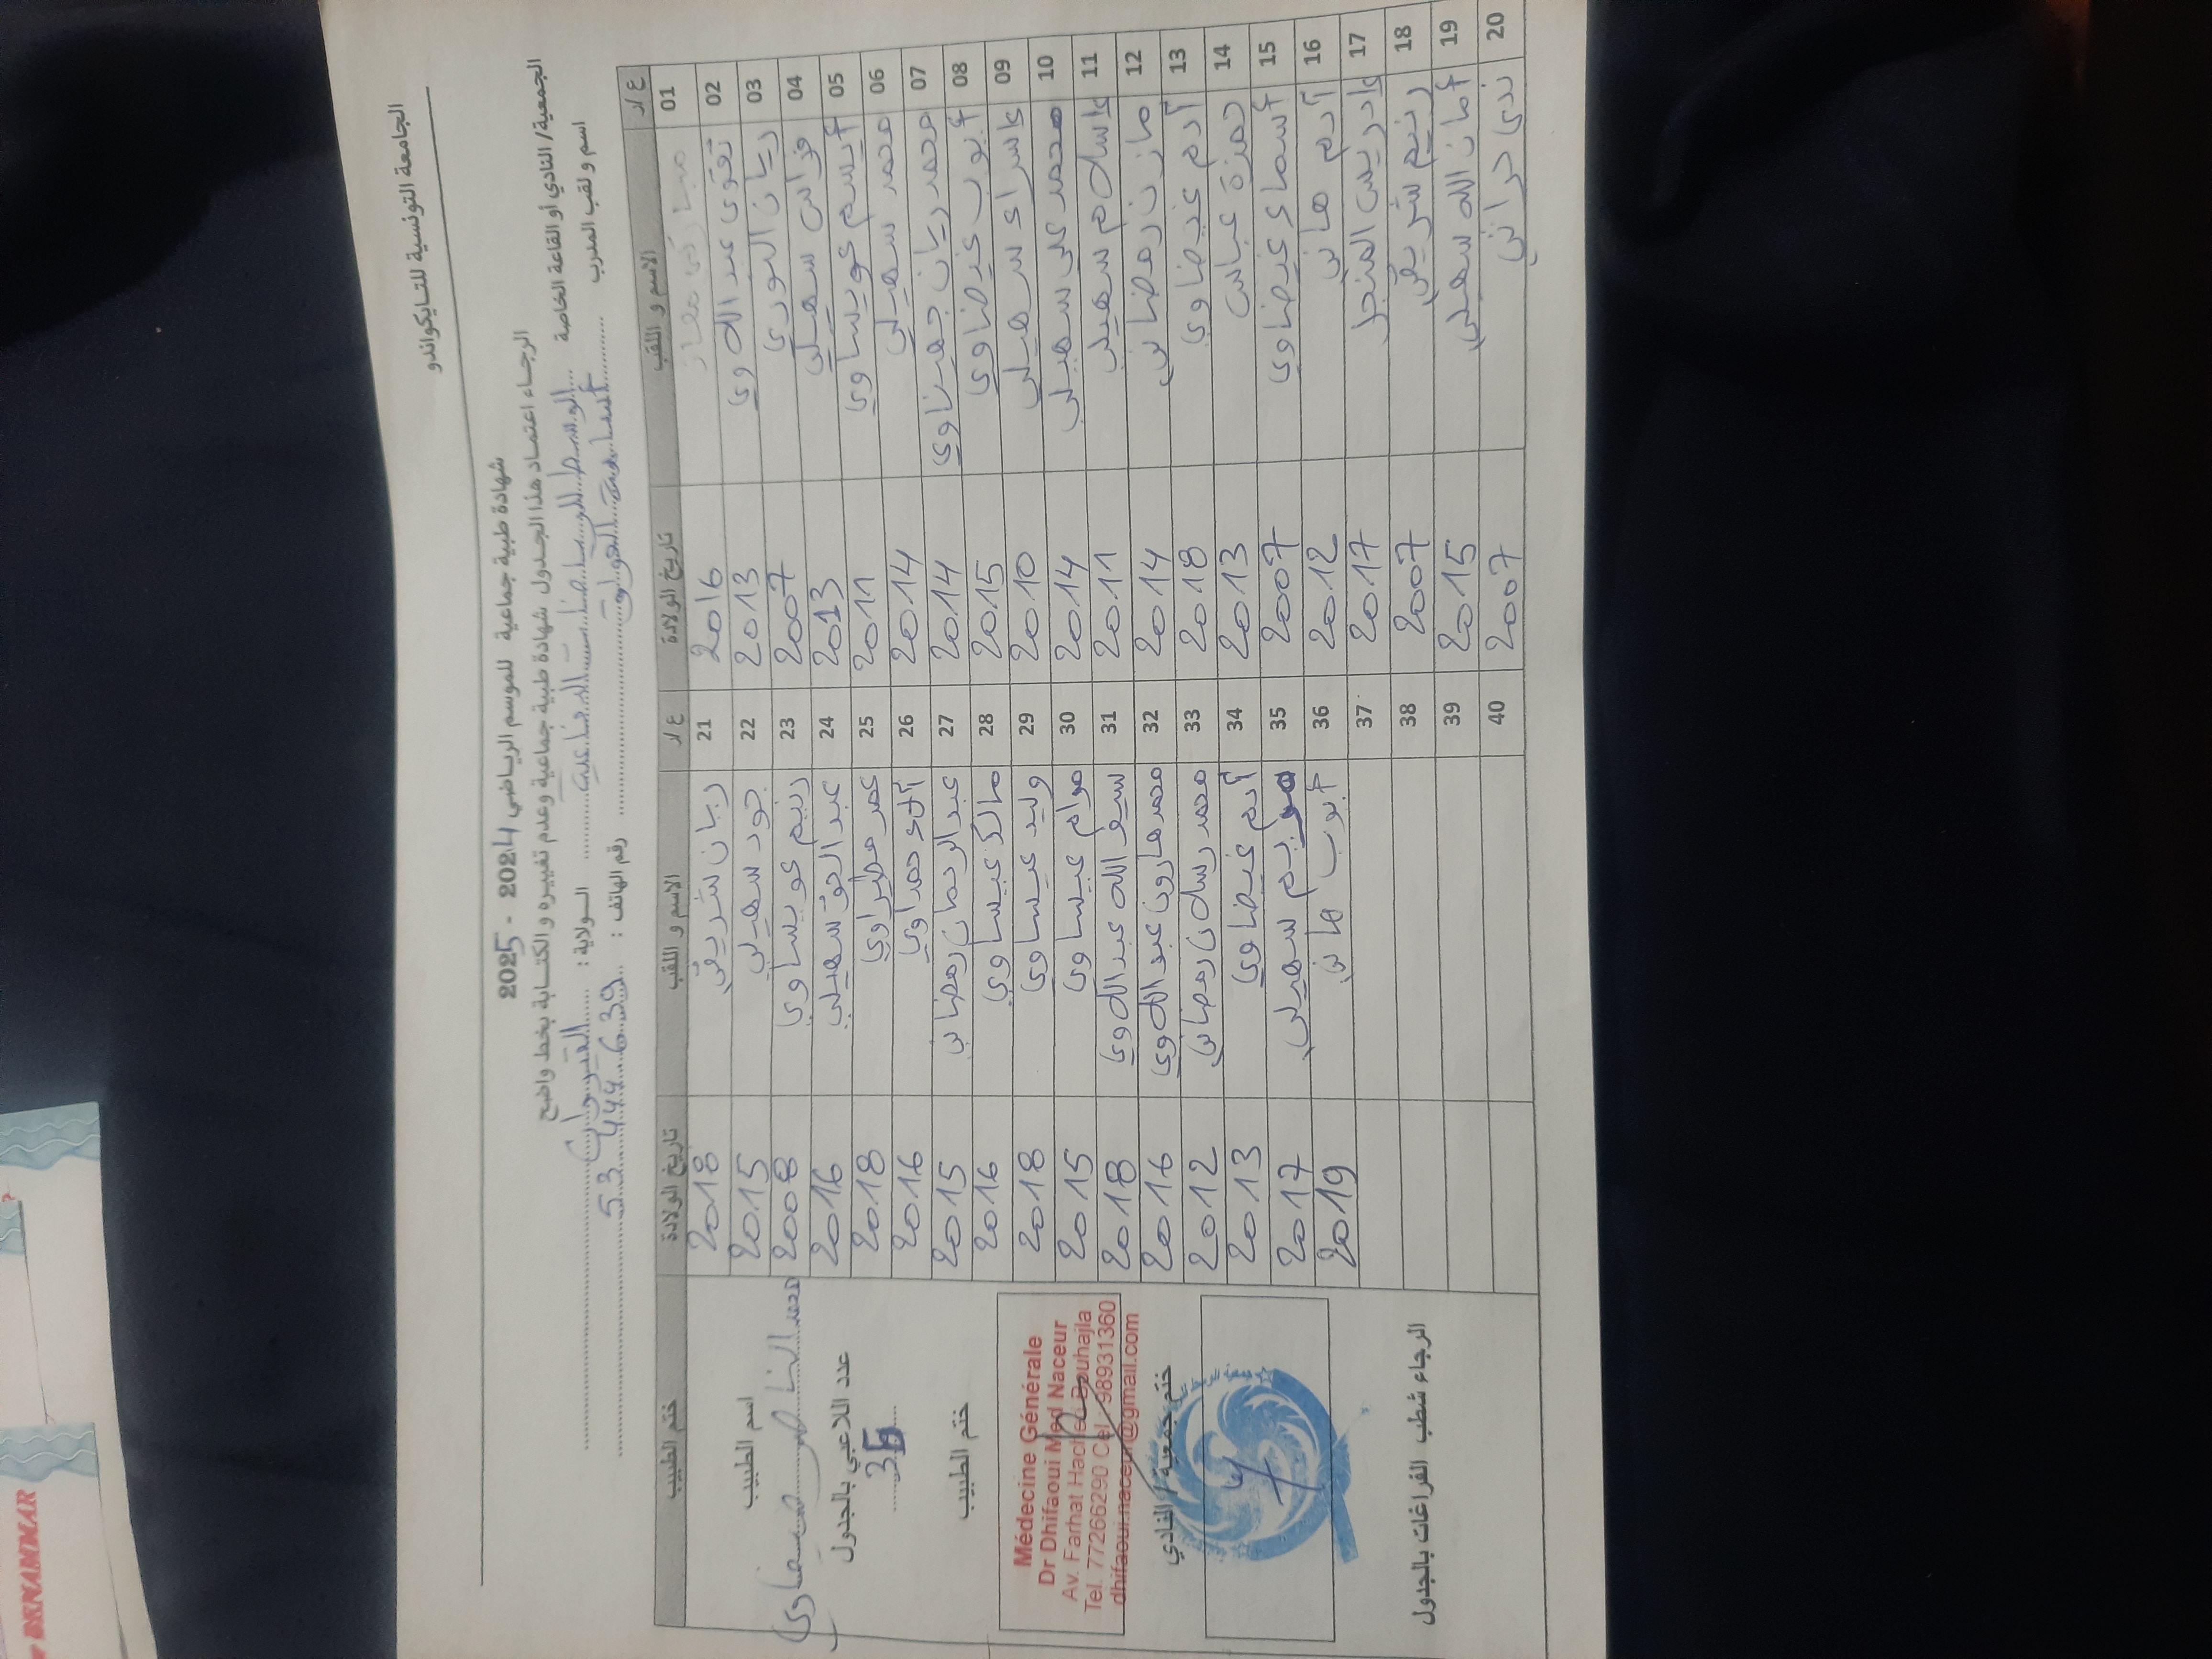 الجامعة التونسية للتايكواندو
شهادة طبية جماعية للموسم الرياضي 2024 - 2025
الرجاء اعتماد هذا الجدول شهادة طبية جماعية وعدم تغييره والكتابة بخط واضح
الجمعية/ النادي أو القاعة الخاصة الوسط للرياضات الدفاعية الولاية : القيروان
اسم و لقب المدرب أسامة رقم الهاتف : 53 444 639
ع/د الاسم و اللقب تاريخ الولادة ع/د الاسم و اللقب تاريخ الولادة ختم الطبيب
01 2016 21 ريان شريفي 2018
02 تقوى عبد اللاوي 2013 22 جود سهيلي 2015
03 ريان النوري 2007 23 رنيم عويساوي 2008
04 فراس سهيلي 2013 24 عبد الحق سهيلي 2016
05 عويساوي 2011 25 عمر 2018
06 محمد سهيلي 2014 26 حمداوي 2016
07 محمد ريان 2014 27 عبد الرحمان رمضاني 2015
08 أيوب غيضاوي 2015 28 مالك عيساوي 2016
09 إسراء سهيلي 2010 29 وليد عيساوي 2018
10 محمد علي سهيلي 2014 30 مرام عيساوي 2015
11 إسلام سهيلي 2011 31 سيف الله عبد اللاوي 2018
12 مازن رمضاني 2014 32 محمد هارون عبد اللاوي 2016
13 آدم غيضاوي 2018 33 محمد رسلان رمضاني 2012
14 حمزة عباس 2013 34 آدم غيضاوي 2013
15 أسماء غيضاوي 2007 35 مريم سهيلي 2017
16 آدم هاني 2012 36 أيوب هاني 2019
17 إدريس المنجل 2017 37
18 رنيم شريفي 2007 38
19 أمان الله سهيلي 2015 39
20 ندى حراثي 2007 40
اسم الطبيب
محمد الناصر ضيفاوي
عدد اللاعبي بالجدول
35
ختم الطبيب
Médecine Générale
Dr Dhifaoui Med Naceur
Av. Farhat Hached Bouhajla
Tel. 77266290 Cel. 98931360
dhifaoui.naceur@gmail.com
ختم جمعية / النادي
الرجاء شطب الفراغات بالجدول
BENAMMAR